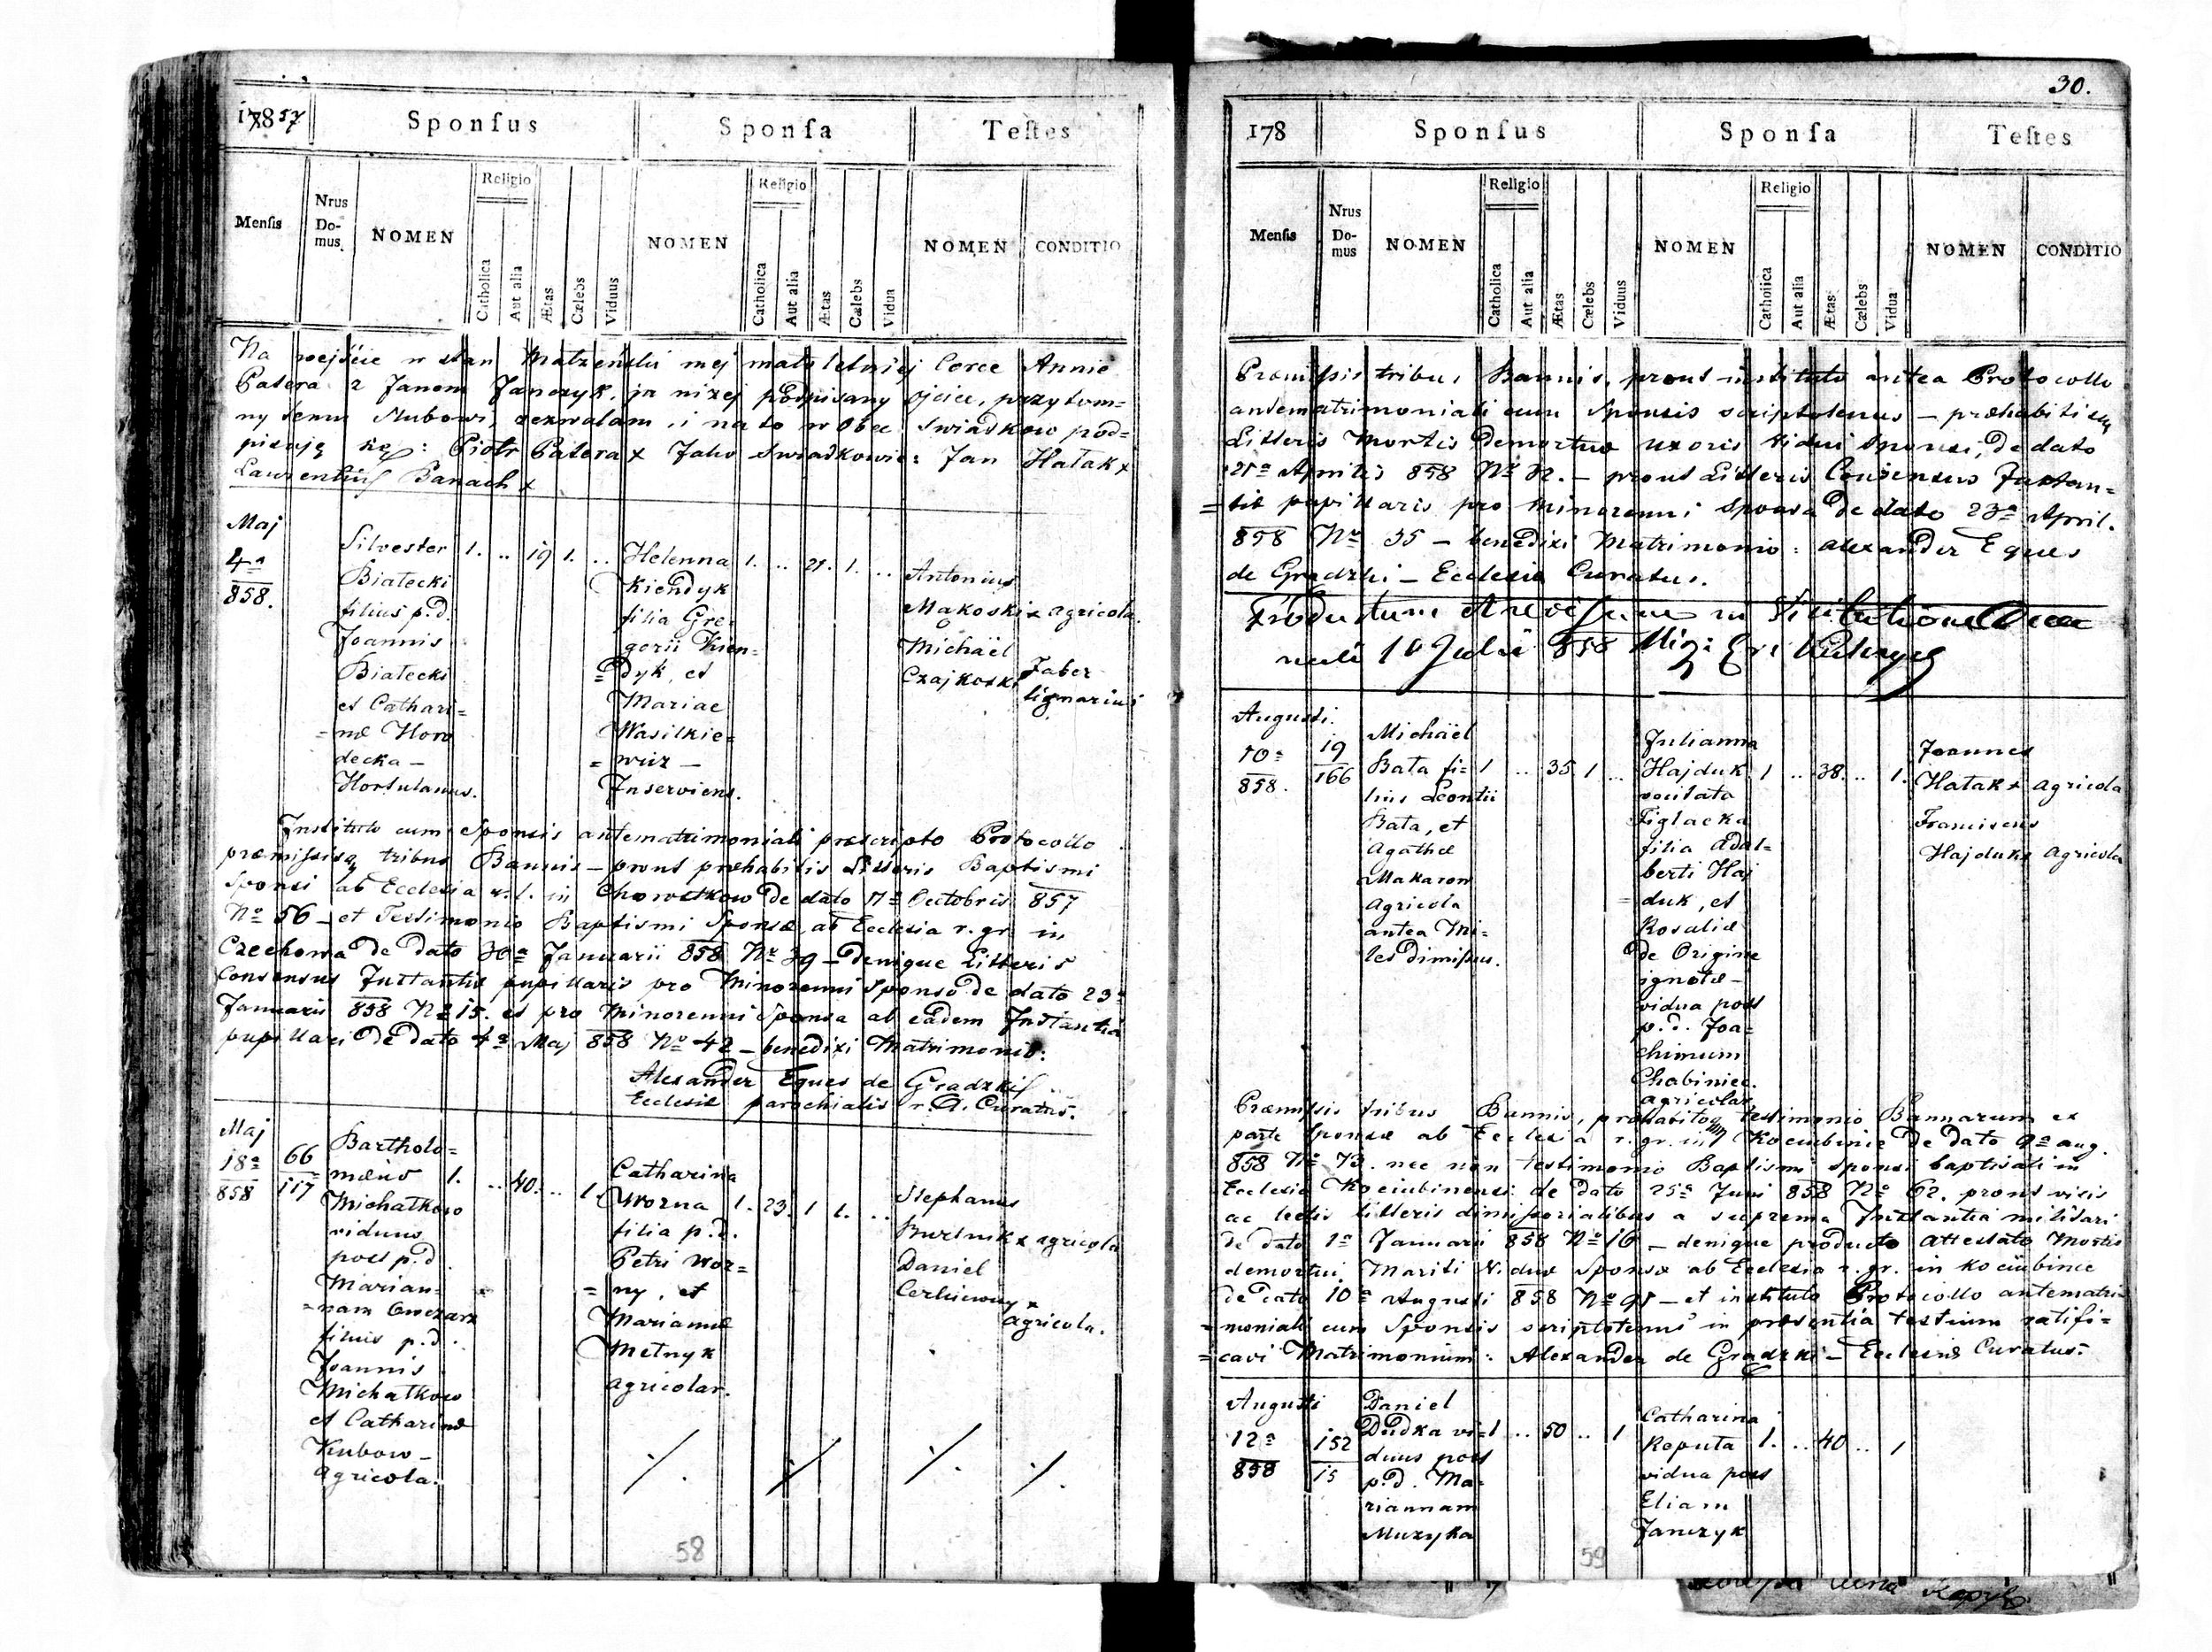 17857
Sponſus
Sponſa
Teſtes
Menſis
Nrus Do-mus.
NOMEN
Religio
Catholica
Aut alia
Ætas
Cælebs
Viduus
NOMEN
Religio
Catholica
Aut alia
Ætas
Cælebs
Vidua
NOMEN
CONDITIO
Na wejście w stan Małżeński mej małoletniej Corce Annie
Patera z Janem Janczyk, ja niżej podpisany ojciec, przytom=
ny temu slubowi, zezwalam, i na to w obec swiadkow pod=
pisuję się: Piotr Patera x Jako Swiadkowie: Jan Hałak x
Laurentius Banach x
Maj
4ª
858.
Silvester 1. .. 19 1. ..
Białecki
filius p.d.
Joannis
Białecki
et Cathari=
=næ Horo
decka —
Hortulanus.
Helenna 1. .. 21. 1. ..
Kiendyk
filia Gre=
gorii Kien=
=dyk, et
Mariae
Wasilkie=
=wicz —
Inserviens.
Antonius
Makoski x agricola.
Michaël
Czajkoski Faber
lignarius
Instituto cum Sponsis antematrimoniali præscripto Protocollo
præmissisq tribus Bannis — prout præhabitis Litteris Baptismi
Sponsi ab Ecclesia r. l. in Chorostkow de dato 17ª Octobris 857
Nº 56 — et Testimonio Baptismi Sponsæ, ab Ecclesia r. gr. in
Czechowa de dato 30ª Januarii 858 Nr 39 — denique Litteris
Consensus Instantiæ pupillaris pro Minorenni Sponso de dato 23ª
Januarii 858 Nº 15. et pro Minorenni Sponsa ab eadem Instantia
pupillari de dato 4ª Maj 858 Nº 42 — benedixi Matrimonio:
Alexander Eques de Gradzki
Ecclesiæ parochialis r. l. Curatus.
Maj
18ª
858
66
117
Bartholo=
mæus 1. .. 40. .. 1.
Michałkow
viduus
post p.d.
Marian=
=nam Owczarz
filius p.d.
Joannis
Michałkow
et Catharinæ
Kubow —
Agricola.
Catharina
Worna 1. 23. 1 1. ..
filia p.d.
Petri Wor=
=ny, et
Mariannæ
Melnyk
agricolar.
Stephanus
Burlnik x agricola
Daniel
x
agricola.
58
30.
178
Sponſus
Sponſa
Teſtes
Menſis
Nrus Do-mus
NOMEN
Religio
Catholica
Aut alia
Ætas
Cælebs
Viduus
NOMEN
Religio
Catholica
Aut alia
Ætas
Cælebs
Vidua
NOMEN
CONDITIO
Præmissis tribus Bannis, prout instituto antea Protocollo
antematrimoniali cum Sponsis scriptotenus — præhabitisq
Litteris Mortis demortuæ uxoris vidui Sponsi, de dato
21ª Aprilis 858 Nr 32. — prout Litteris Consensus Instan=
=tiæ pupillaris pro minorenni Sponsa de dato 23ª April.
858 Nr 35 — benedixi Matrimonio: Alexander Eques
de Gradzki — Ecclesiæ Curatus.
Productum et revisum in Visitatione Deca
nali 10 Julii 858
Augusti.
10ª
858.
19
166
Michäel
Bata fi= 1 .. 35. 1 ..
lius Leontii
Bata, et
Agathæ
Makaron
agricola
antea Mi=
les dimissus.
Julianna
Hajduk 1 .. 38. .. 1.
vocitata
Figlacka
filia Adal=
berti Haj
=duk, et
Rosaliæ
de Origine
ignotæ —
vidua post
p.d. Joa=
chimum
Chabiniec.
agricolar.
Joannes
Hałak x agricola
Franciscus
Hajduk x agricola
Præmissis tribus Bannis, præhabitoq testimonio Bannarum ex
parte Sponsæ ab Ecclesia r. gr. in Kociubince de dato 9ª aug.
858 Nº 73. nec non testimonio Baptismi Sponsi baptisati in
Ecclesia Kociubinensi de dato 25ª Juni 858 Nº 62. prout visis
ac lectis litteris dimissorialibus a suprema Instantia militari
de dato 1ª Januarii 858 Nº 16 — denique producto attestato Mortis
demortui Mariti viduæ Sponsæ ab Ecclesia r. gr. in Kociubince
de dato 10ª Augusti 858 Nº 95 — et instituto Protocollo antematri=
=moniali cum Sponsis scriptotenus in præsentia testium ratifi=
=cavi Matrimonium: Alexander de Gradzki — Ecclesiæ Curatus.
Augusti
12ª
858
152
15
Daniel
Dudka vi= 1 .. 50 .. 1
duus post
p.d. Ma=
riannam
Muzyka
Catharina
Reputa 1. .. 40 .. 1
vidua post
Eliam
Janczyk
59